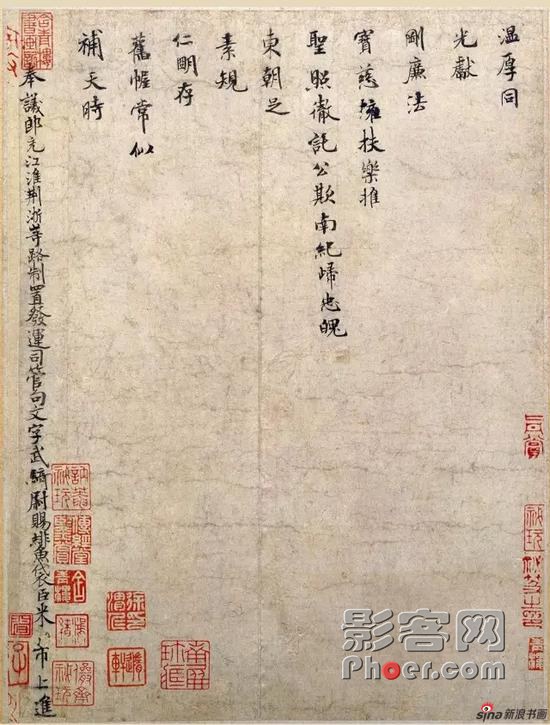 温厚同
光獻
剛廉法
寶慈擁扶樂推
聖照徹託公欺南紀歸忠魄
東朝足
素規
仁明存
舊幄常似
補天時
奉議郎充江淮荆浙等路制置發運司管句文字武騎尉賜緋魚袋臣米芾上進
影客网
Phoer.com
sina新浪书画